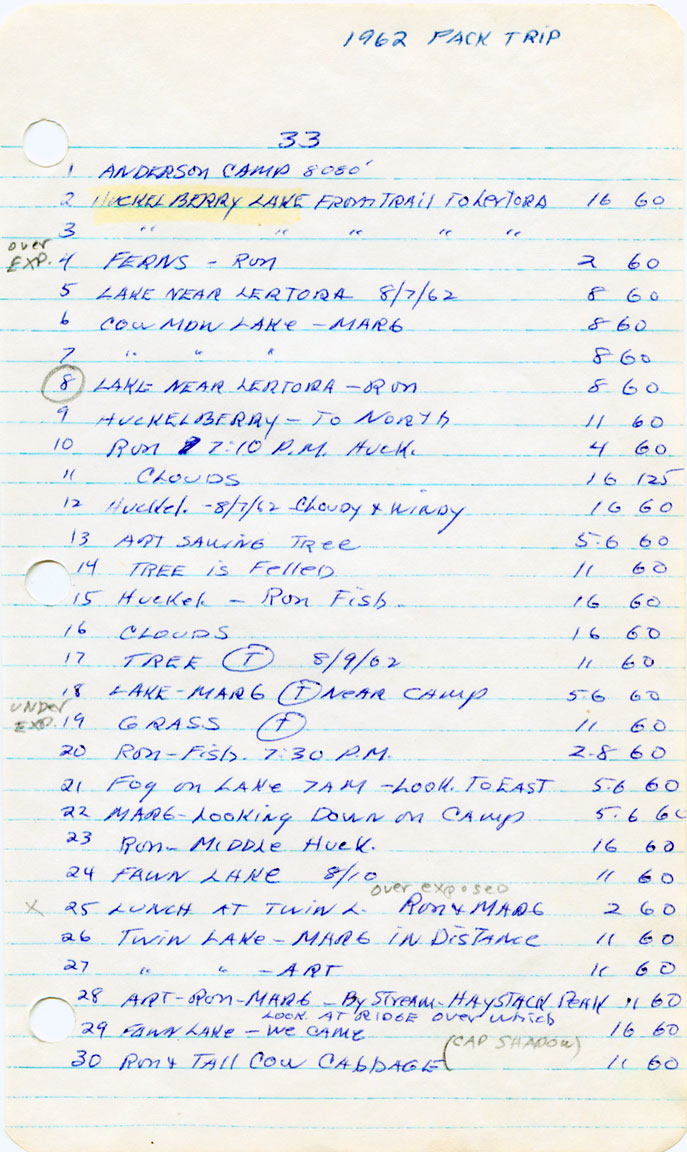 1962 PACK TRIP
33
1 ANDERSON CAMP 8080'
2 HUCKELBERRY LAKE FROM TRAIL To LERTORA 16 60
3 " " " " "
over EXP. 4 FERNS - RUN 2 60
5 LAKE NEAR LERTORA 8/7/62 8 60
6 COW MDW LAKE - MARG 8 60
7 " " " 8 60
8 LAKE NEAR LERTORA - RON 8 60
9 HUCKELBERRY - To NORTH 11 60
10 RON 7:10 P.M. HUCK. 4 60
11 CLOUDS 16 125
12 HUCKEL. - 8/7/62 CLOUDY & WINDY 16 60
13 ART SAWING TREE 5.6 60
14 TREE is FELLED 11 60
15 HUCKEL - RON FISH. 16 60
16 CLOUDS 16 60
17 TREE T 8/9/62 11 60
18 LAKE - MARG T NEAR CAMP 5.6 60
UNDER EXP. 19 GRASS T 11 60
20 RON - FISH. 7:30 P.M. 2.8 60
21 FOG on LAKE 7AM - LOOK. To EAST 5.6 60
22 MARG - LOOKING DOWN on CAMP 5.6 60
23 RON - MIDDLE HUCK. 16 60
24 FAWN LAKE 8/10 11 60
over exposed
X 25 LUNCH AT TWIN L. RON & MARG 2 60
26 TWIN LAKE - MARG IN DISTANCE 11 60
27 " " - ART 11 60
28 ART - RON - MARG - By STREAM - HAYSTACK PEAK 11 60
LOOK AT RIDGE OVER WHICH
29 FAWN LAKE - WE CAME 16 60
(CAP SHADOW)
30 RON & TALL COW CABBAGE 11 60